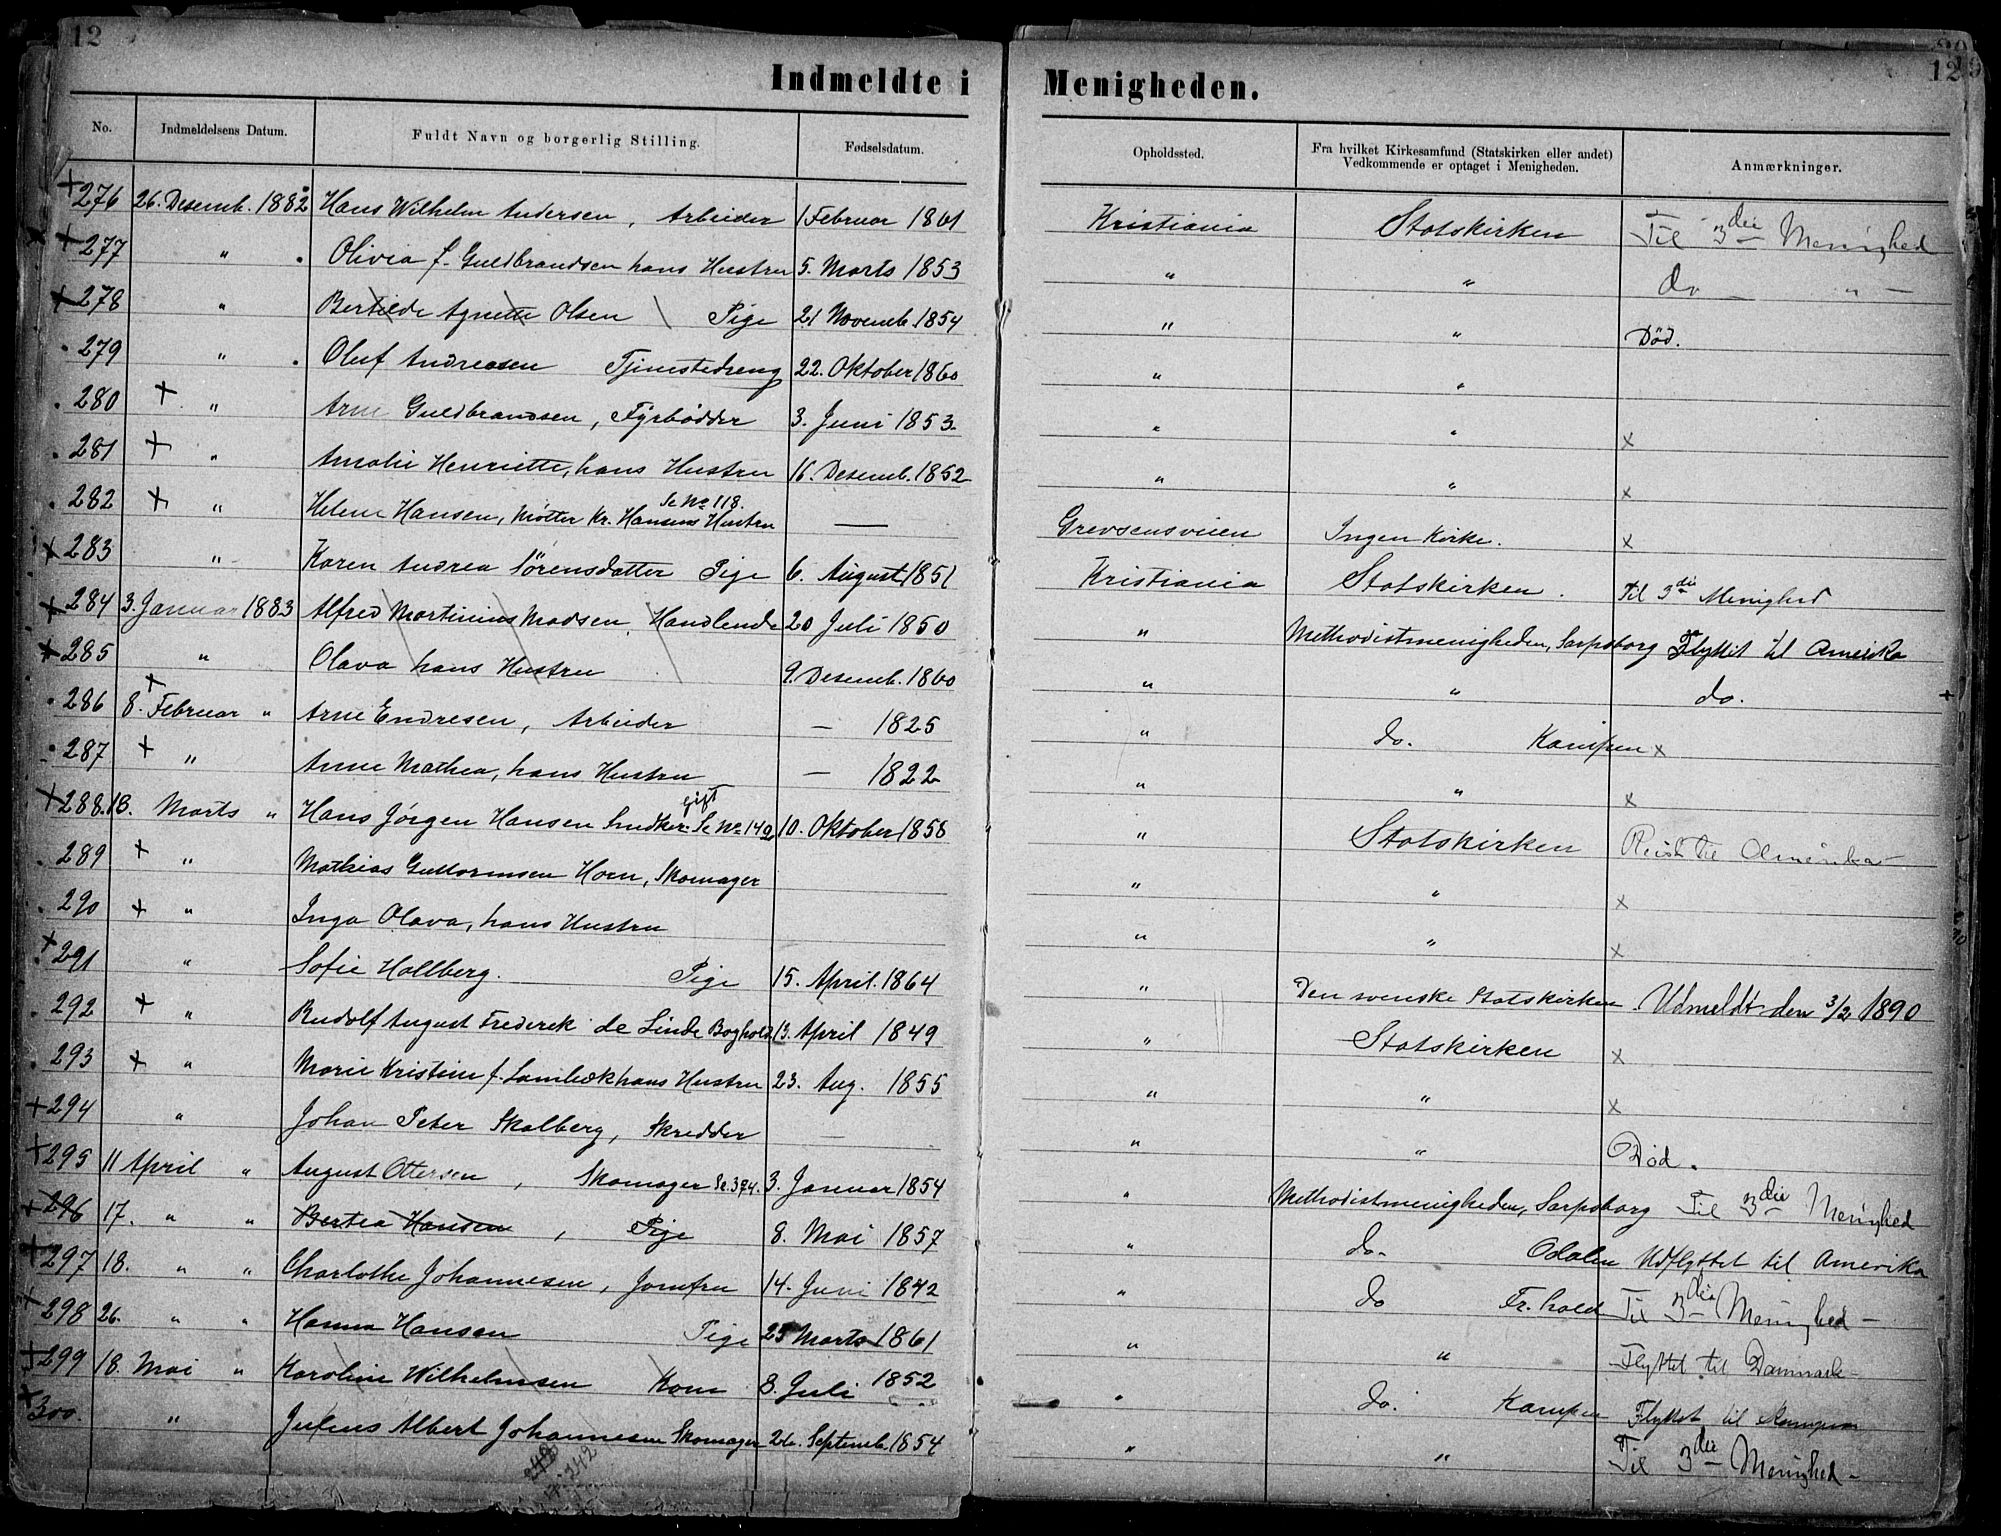 12
12
Indmeldte i Menigheden.
No. Indmeldelsens Datum. Fuldt Navn og borgerlig Stilling. Fødselsdatum. Opholdssted. Fra hvilket Kirkesamfund (Statskirken eller andet) Vedkommende er optaget i Menigheden. Anmærkninger.
+276 26. Desemb. 1882 Hans Wilhelm Andersen, Arbeider 1 Februar 1861 Kristiania Statskirken Til 3die Menighed
+277 " Olivia f. Guldbrandsen hans Hustru 5. Marts 1853 " " do — " —
+278 " Bertilde Agnette Olsen Pige 21 Novemb. 1854 " " Død.
279 " Oluf Andreasen Tjenestedreng 22. Oktober 1860 " "
280 + " Arne Guldbrandsen, Fyrbødder 3. Juni 1853 " " x
281 + " Amalie Henriette, hans Hustru 16. Desemb. 1852 " " x
282 + " Helene Hansen, Møller Kr. Hansens Hustru Se No 118. — Grevsensveien Ingen Kirke. x
+283 " Karen Andrea Sørensdatter Pige 6. August 1851 Kristiania Statskirken. Til 3die Menighed
+284 3. Januar 1883 Alfred Martinius Madsen, Handlende 20 Juli 1850 " Methodistmenigheden, Sarpsborg Flyttet til Amerika
+285 " Olava hans Hustru 9. Desemb. 1860 " " do.
286 8. + Februar " Arne Endresen, Arbeider — 1825 " do. Kampen x
287 + " Anne Mathea, hans Hustru — 1822 " " x
+288. 13. Marts " Hans Jørgen Hansen Snedker. gift Se No 149 10. Oktober 1856 " Statskirken Reist til Amerika
289 + " Mathias Guttormsen Horn, Skomager " " x
290 + " Inga Olava, hans Hustru " " x
+291 " Sofie Hallberg. Pige 15. April. 1864 " Den svenske Statskirken. Udmeldt den 3/2 1890
292 + " Rudolf August Frederik de Linde Boghold. 13. April 1849 " Statskirken x
293 + " Marie Kristine f. Lambæk hans Hustru 23. Aug. 1855 " " x
+294 " Johan Peter Skalberg, Skredder — " " Død.
+295 11 April " August Ottersen, Skomager Se. 374. 3. Januar 1854 " Methodistmenigheden, Sarpsborg Til 3die Menighed
+296 17. " " Bertea Hansen, Pige 8. Mai 1857 " do. Odalen Udflyttet til Amerika
+297 18. " " Charlothe Johannesen, Jomfru 14. Juni 1842 " do Fr.hald Til 3die Menighed —
+298 26. " " Hanna Hansen Pige 25 Marts 1861 " " Flyttet til Danmark —
+299 18. Mai " Karoline Wilhelmsen Kone 8. Juli 1852 " do. Kampen Flyttet til Kampen
+300. " Julius Albert Johannesen Skomager 26. Septemb. 1854 " " Til 3die Menighed —
242